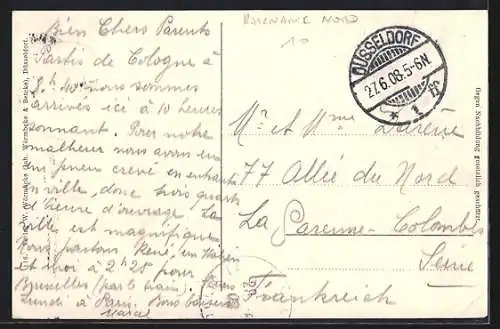 Bien Chers Parents
Partis de Cologne à
8h 40 nous sommes
arrivés ici à 10 heures
sonnant. Pour notre
malheur nous avons eu
un pneu crevé en entrant
en ville, donc trois quarts
d'heure d'ouvrage. La
ville est magnifique.
Nous partons René, un Italien
et moi à 2h 25 pour
Bruxelles (par le train). Serons
Lundi à Paris. Bons baisers
Marcel
RHENANIE NORD
10
DÜSSELDORF
27.6.08.5-6N.
* 1 ff
Mr et Mme
77 Allée du Nord
La Garenne-Colombes
Seine
Frankreich
Gegen Nachbildung gesetzlich geschützt.